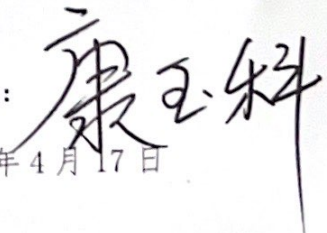 ：康玉科
年 4 月 17 日